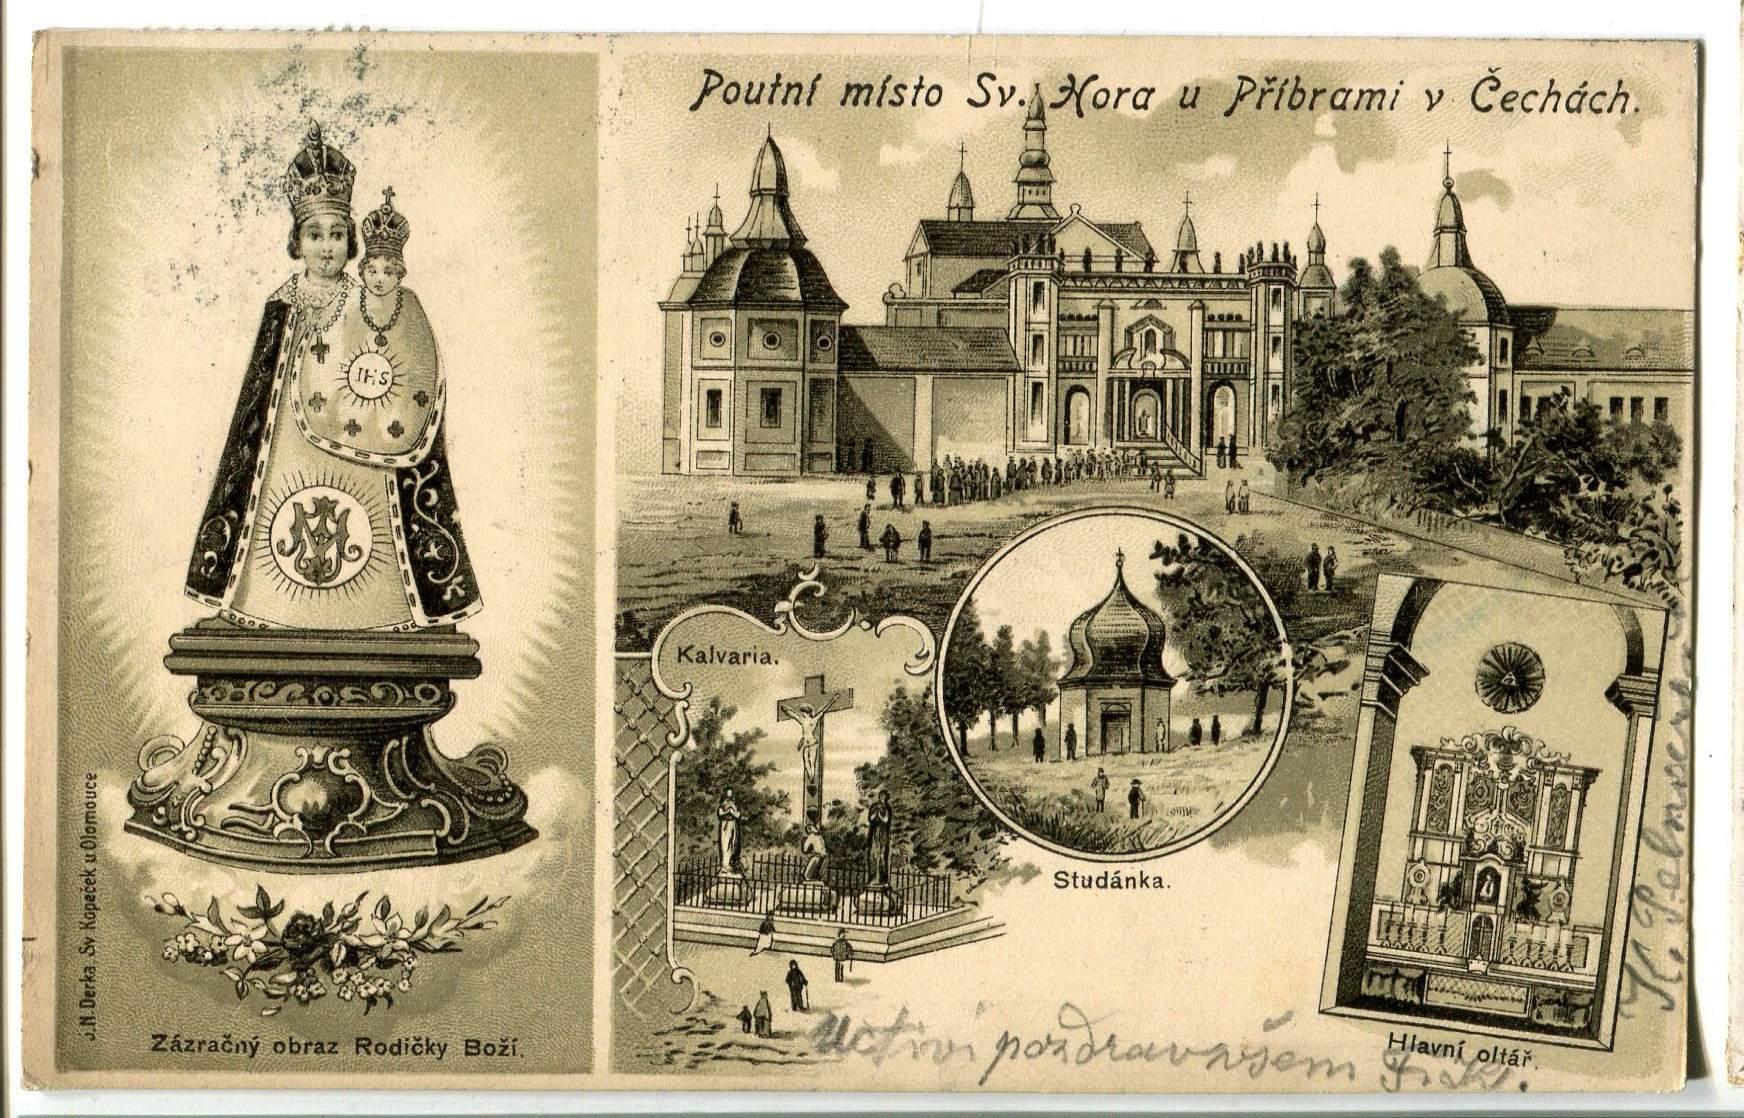 Poutní místo Sv. Hora u Příbrami v Čechách.
IHS
Kalvaria.
Studánka.
Hlavní oltář.
Zázračný obraz Rodičky Boží.
J.N.Derka Sv Kopeček u Olomouce
Uctivý pozdrav všem